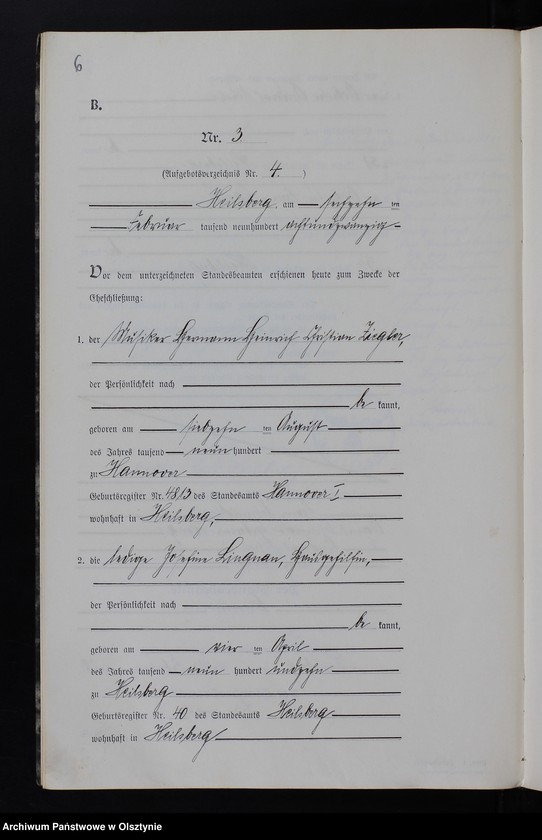 6
B.
Nr. 3
(Aufgebotsverzeichnis Nr. 4. )
Heilsberg, am sechzehn ten
Februar tausend neunhundert achtundzwanzig
Vor dem unterzeichneten Standesbeamten erschienen heute zum Zwecke der
Eheschließung:
1. der Musiker Hermann Heinrich Christian Ziegler,
der Persönlichkeit nach
be kannt,
geboren am siebzehn ten August
des Jahres tausend neun hundert
zu Hannover
Geburtsregister Nr. 4813 des Standesamts Hannover I
wohnhaft in Heilsberg,
2. die ledige Josefine Lingnau, Hausgehilfin,
der Persönlichkeit nach
be kannt,
geboren am vier ten April
des Jahres tausend neun hundert undzehn
zu Heilsberg
Geburtsregister Nr. 40 des Standesamts Heilsberg
wohnhaft in Heilsberg
Archiwum Państwowe w Olsztynie